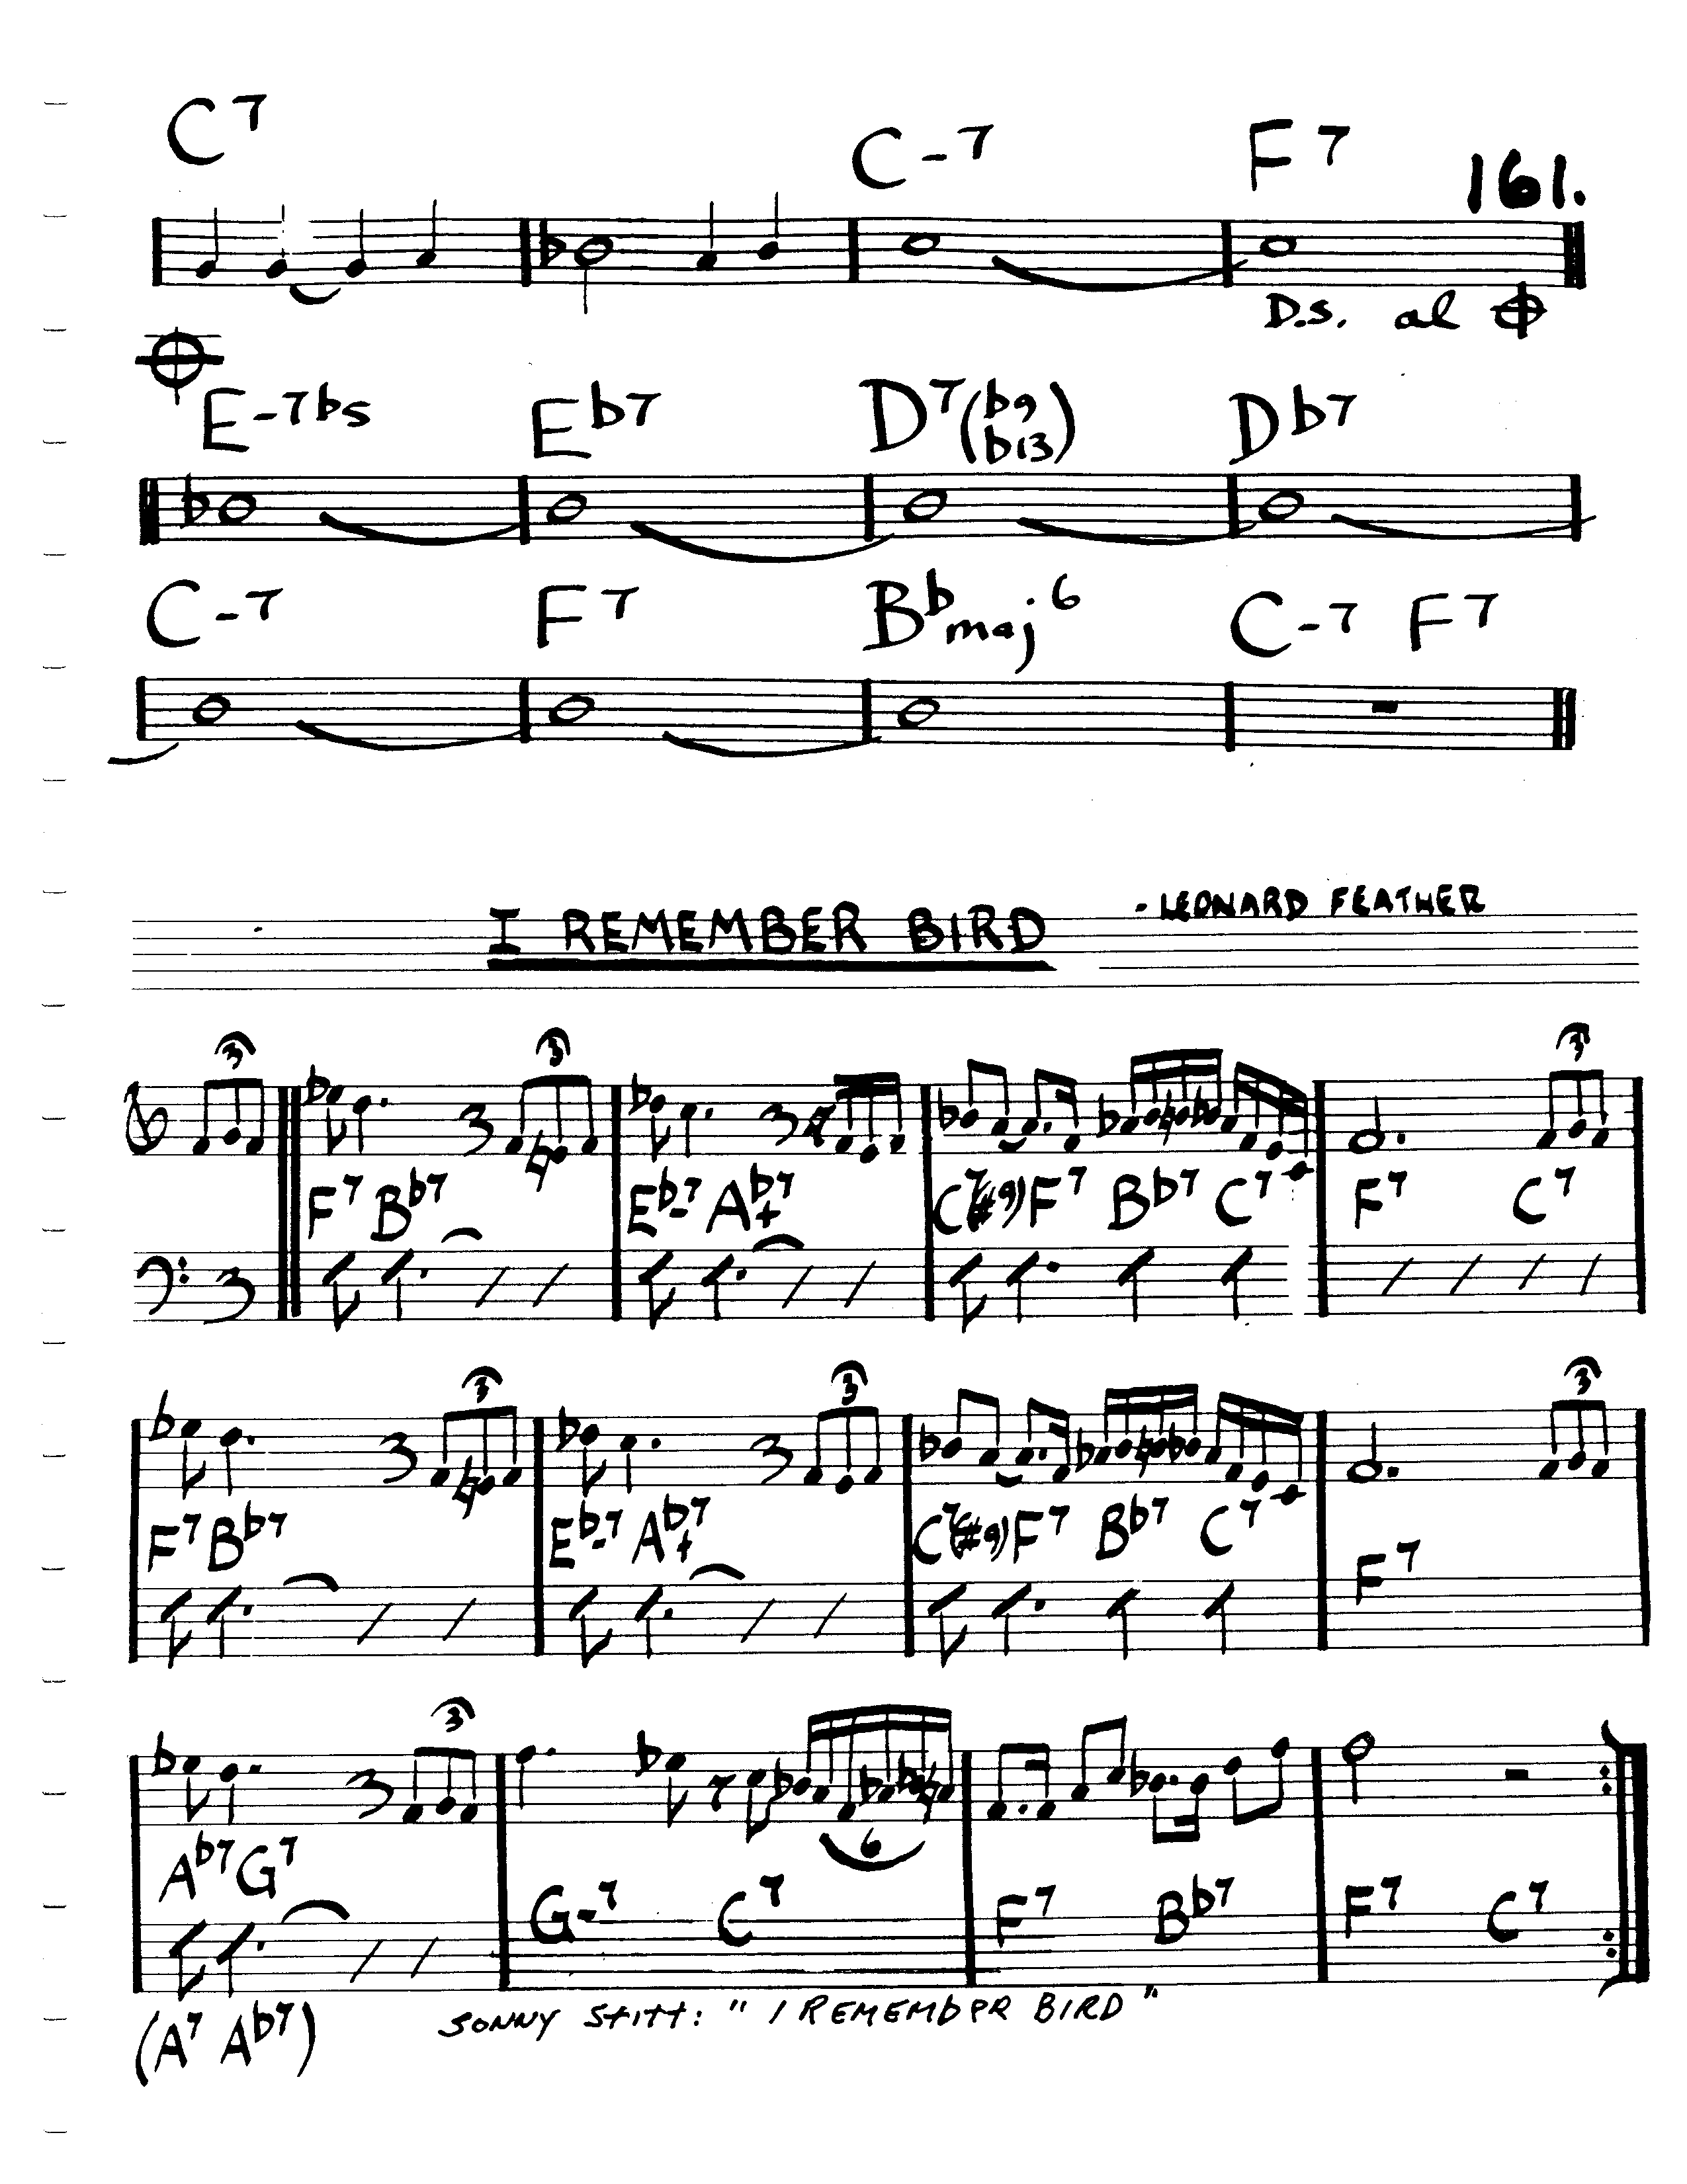 C7 C-7 F7 161.
D.S. al
E-7b5 Eb7 D7(b9 b13) Db7
C-7 F7 Bbmaj6 C-7 F7
I REMEMBER BIRD - LEONARD FEATHER
3 3 3 3
F7 Bb7 Eb-7 Ab7+ C7(#9) F7 Bb7 C7 F7 C7
3 3 3
F7 Bb7 Eb-7 Ab7+ C7(#9) F7 Bb7 C7 F7
3
6
Ab7 G7 G-7 C7 F7 Bb7 F7 C7
(A7 Ab7) SONNY STITT: " I REMEMBER BIRD "